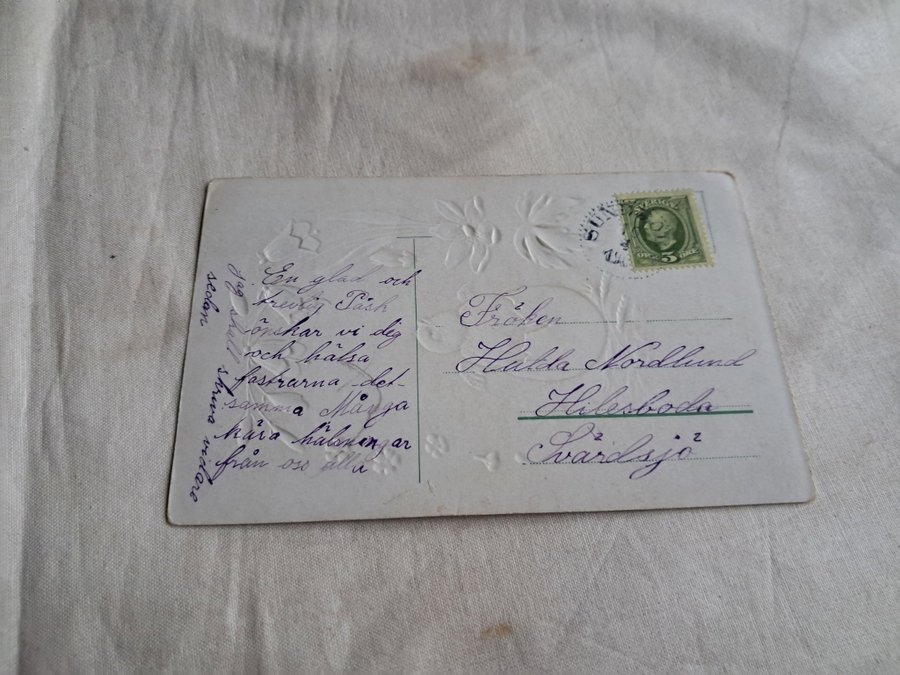 En glad och
trevlig Påsk
önskar vi dig
och hälsa
fastrarna det-
samma Många
kära hälsningar
från oss alla
jag skall skriva vidare
sedan
SVERIGE
5
ÖRE
SUN
Fröken
Hulda Nordlund
Hilesboda
Svärdsjö